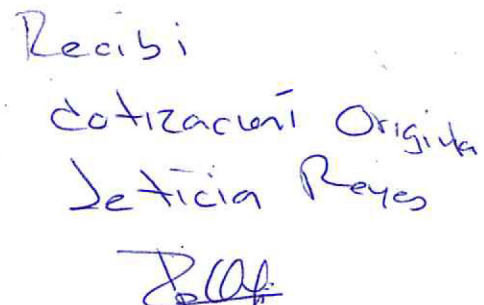 Recibi
cotización Original
Leticia Reyes